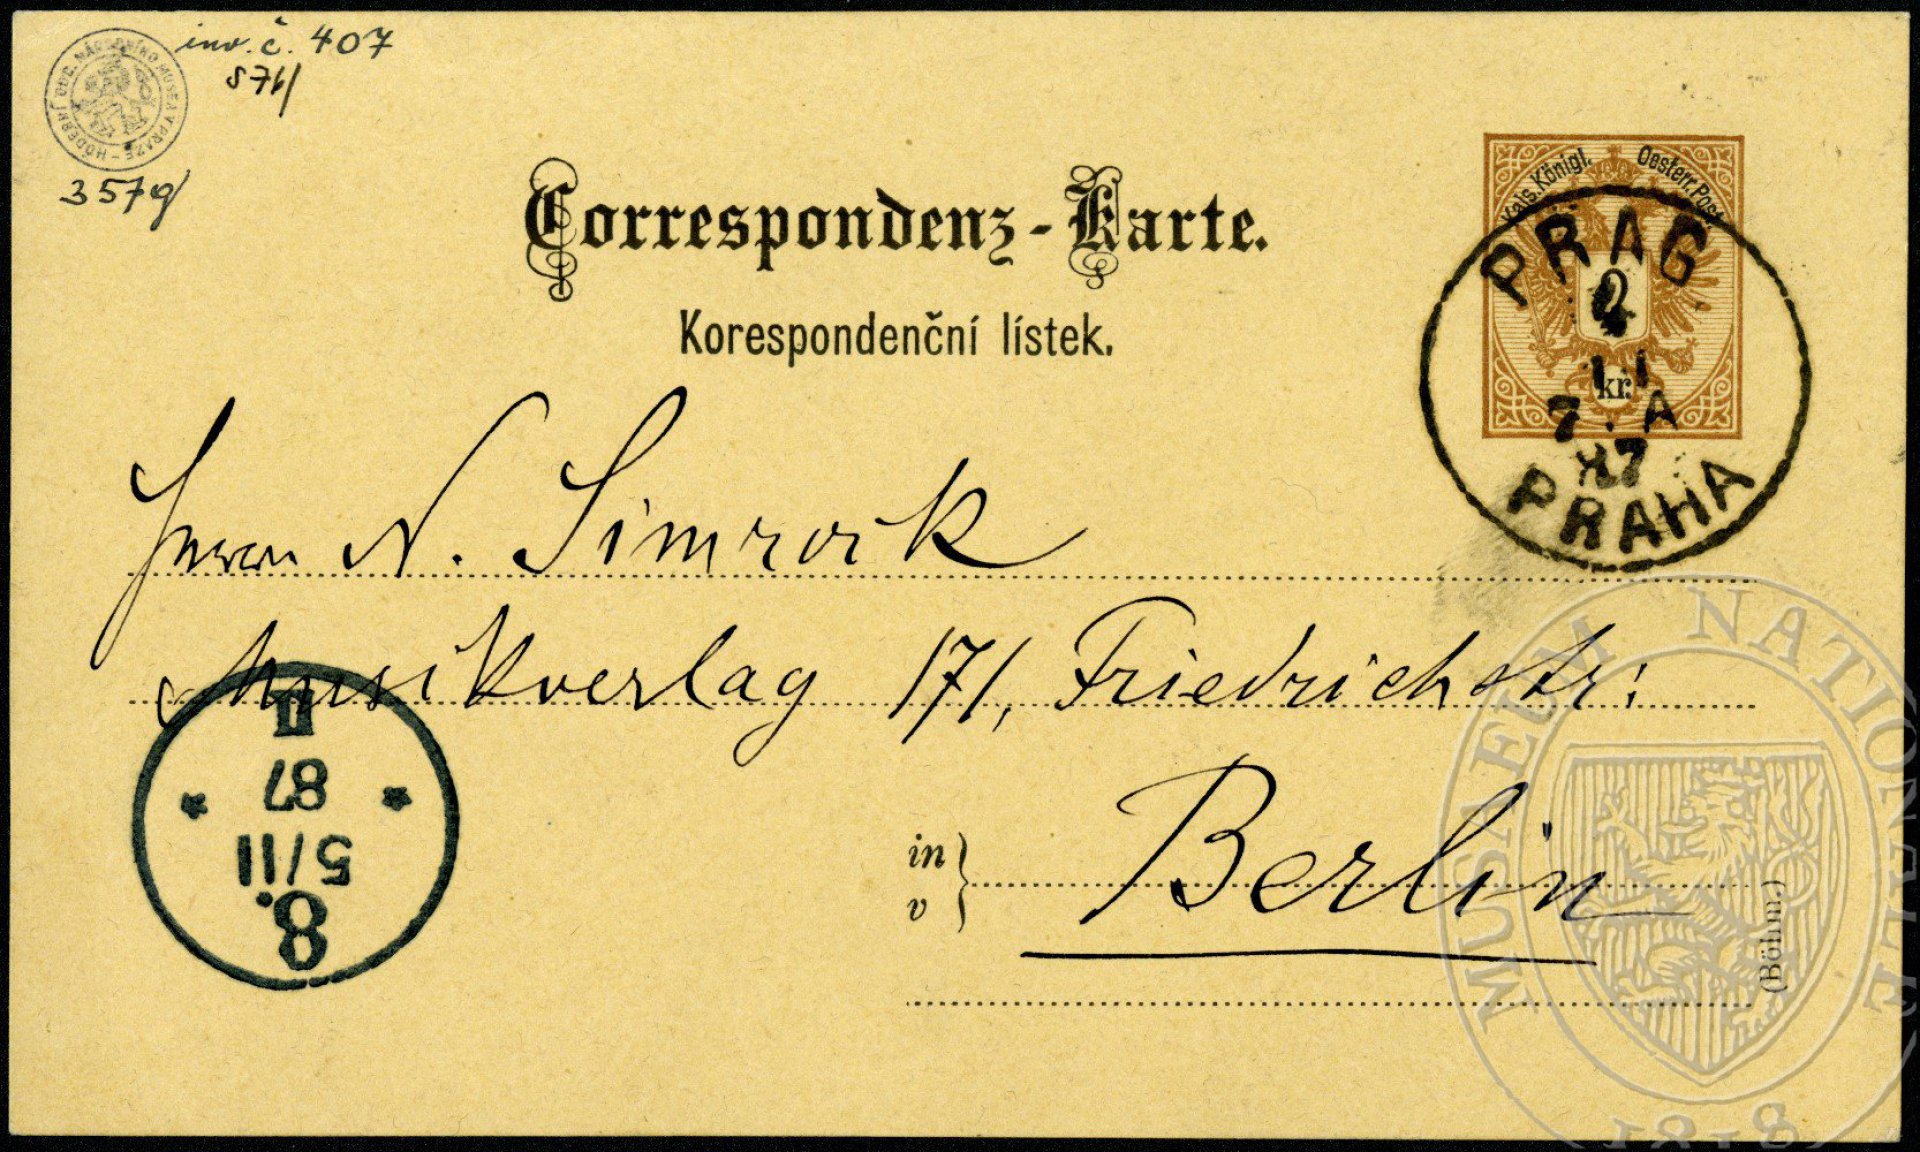 inv. č. 407
S 76/
HUDEBNÍ ODD. NÁRODNÍHO MUSEA V PRAZE
357g/
Correspondenz-Karte.
Korespondenční lístek.
Kais. Königl. Oesterr. Post
2
kr.
PRAG
11
7. A
87
PRAHA
Herrn N. Simrock
Musikverlag 171, Friedrichstr:
in
v
Berlin
(Böhm.)
II
87
5/11
8.
MUSAEUM NATIONALE
1818